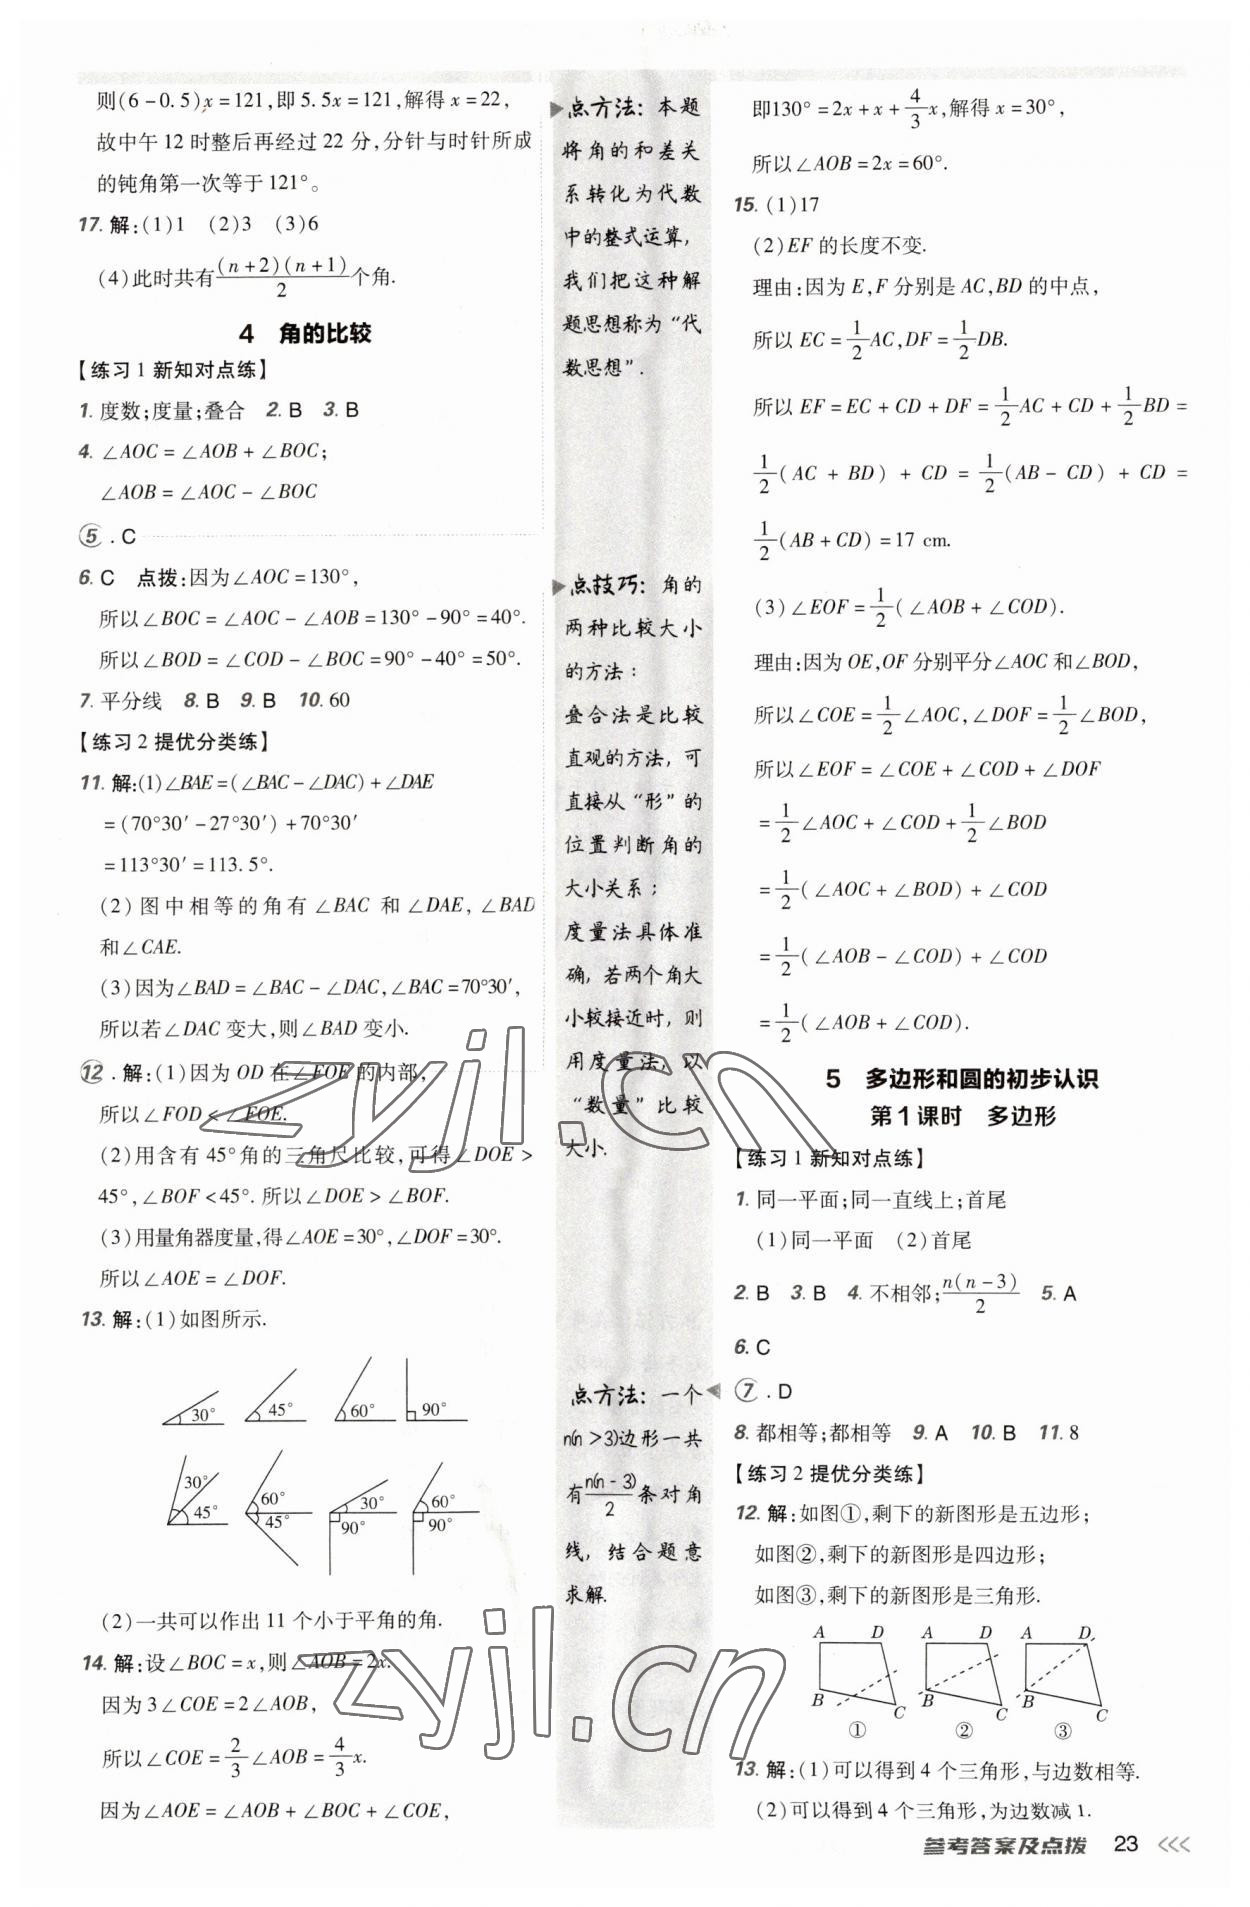 则(6-0.5)x=121,即5.5x=121,解得x=22,
故中午12时整后再经过22分,分针与时针所成
的钝角第一次等于121°。
17. 解:(1)1 (2)3 (3)6
(4)此时共有\frac{(n+2)(n+1)}{2}个角.
4 角的比较
【练习1 新知对点练】
1. 度数;度量;叠合 2. B 3. B
4. ∠AOC=∠AOB+∠BOC;
∠AOB=∠AOC-∠BOC
⑤. C
6. C 点拨:因为∠AOC=130°,
所以∠BOC=∠AOC-∠AOB=130°-90°=40°.
所以∠BOD=∠COD-∠BOC=90°-40°=50°.
7. 平分线 8. B 9. B 10. 60
【练习2 提优分类练】
11. 解:(1)∠BAE=(∠BAC-∠DAC)+∠DAE
=(70°30′-27°30′)+70°30′
=113°30′=113.5°.
(2)图中相等的角有∠BAC和∠DAE,∠BAD
和∠CAE.
(3)因为∠BAD=∠BAC-∠DAC,∠BAC=70°30′,
所以若∠DAC变大,则∠BAD变小.
⑫. 解:(1)因为OD在∠EOE的内部,
所以∠FOD<∠EOE.
(2)用含有45°角的三角尺比较,可得∠DOE>
45°,∠BOF<45°.所以∠DOE>∠BOF.
(3)用量角器度量,得∠AOE=30°,∠DOF=30°.
所以∠AOE=∠DOF.
13. 解:(1)如图所示.
30° 45° 60° 90°
30° 45° 60° 45° 30° 90° 60° 90°
(2)一共可以作出11个小于平角的角.
14. 解:设∠BOC=x,则∠AOB=2x.
因为3∠COE=2∠AOB,
所以∠COE=\frac{2}{3}∠AOB=\frac{4}{3}x.
因为∠AOE=∠AOB+∠BOC+∠COE,
点方法:本题
将角的和差关
系转化为代数
中的整式运算,
我们把这种解
题思想称为“代
数思想”.
点技巧:角的
两种比较大小
的方法:
叠合法是比较
直观的方法,可
直接从“形”的
位置判断角的
大小关系;
度量法具体准
确,若两个角大
小较接近时,则
用度量法,以
“数量”比较
大小.
点方法:一个
n(n>3)边形一共
有\frac{n(n-3)}{2}条对角
线,结合题意
求解.
即130°=2x+x+\frac{4}{3}x,解得x=30°,
所以∠AOB=2x=60°.
15. (1)17
(2)EF的长度不变.
理由:因为E,F分别是AC,BD的中点,
所以EC=\frac{1}{2}AC,DF=\frac{1}{2}DB.
所以EF=EC+CD+DF=\frac{1}{2}AC+CD+\frac{1}{2}BD=
\frac{1}{2}(AC+BD)+CD=\frac{1}{2}(AB-CD)+CD=
\frac{1}{2}(AB+CD)=17 cm.
(3)∠EOF=\frac{1}{2}(∠AOB+∠COD).
理由:因为OE,OF分别平分∠AOC和∠BOD,
所以∠COE=\frac{1}{2}∠AOC,∠DOF=\frac{1}{2}∠BOD,
所以∠EOF=∠COE+∠COD+∠DOF
=\frac{1}{2}∠AOC+∠COD+\frac{1}{2}∠BOD
=\frac{1}{2}(∠AOC+∠BOD)+∠COD
=\frac{1}{2}(∠AOB-∠COD)+∠COD
=\frac{1}{2}(∠AOB+∠COD).
5 多边形和圆的初步认识
第1课时 多边形
【练习1 新知对点练】
1. 同一平面;同一直线上;首尾
(1)同一平面 (2)首尾
2. B 3. B 4. 不相邻;\frac{n(n-3)}{2} 5. A
6. C
⑦. D
8. 都相等;都相等 9. A 10. B 11. 8
【练习2 提优分类练】
12. 解:如图①,剩下的新图形是五边形;
如图②,剩下的新图形是四边形;
如图③,剩下的新图形是三角形.
A D A D A D
B C B C B C
① ② ③
13. 解:(1)可以得到4个三角形,与边数相等.
(2)可以得到4个三角形,为边数减1.
参考答案及点拨 23
zyjl.cn
zyjl.cn